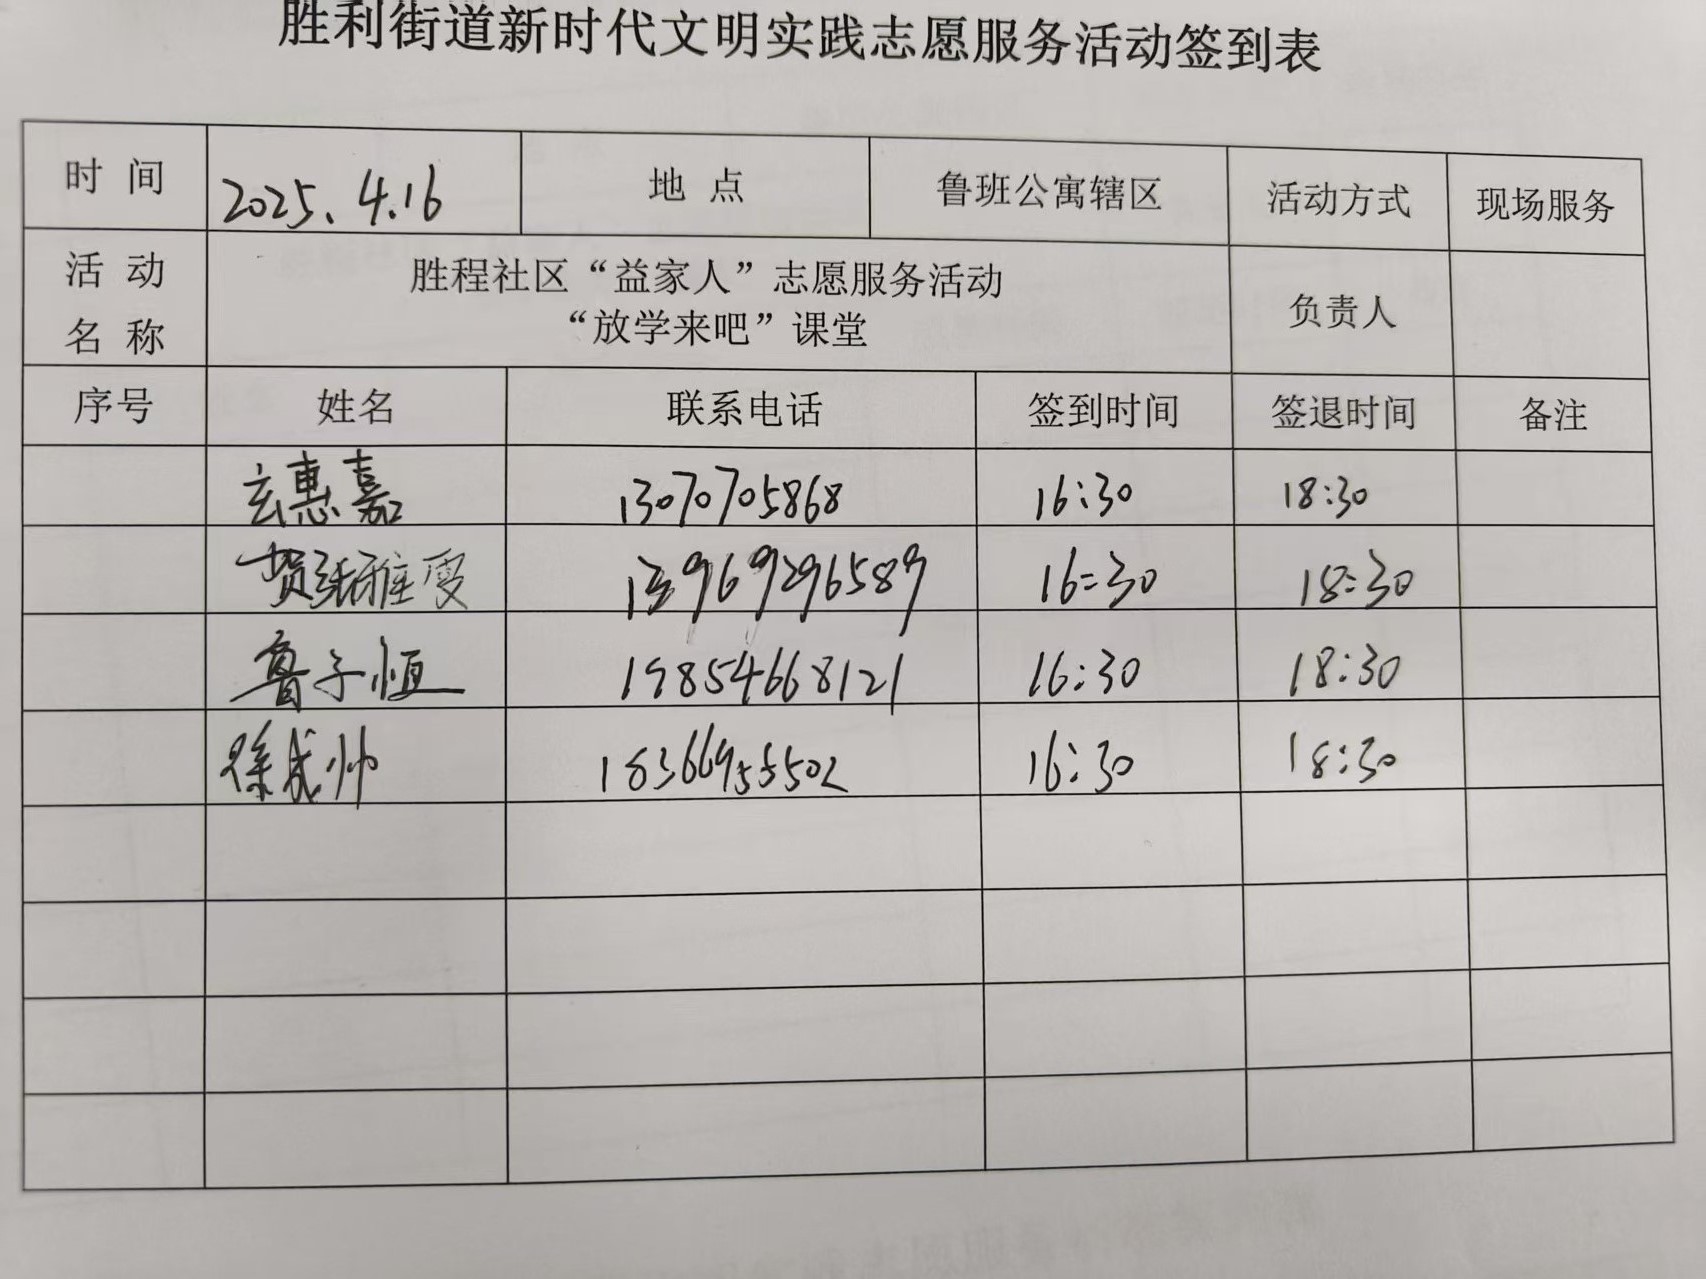 胜利街道新时代文明实践志愿服务活动签到表
时 间 2025.4.16 地 点 鲁班公寓辖区 活动方式 现场服务
活 动 名 称 胜程社区“益家人”志愿服务活动 负责人
“放学来吧”课堂
序号 姓名 联系电话 签到时间 签退时间 备注
玄惠嘉 13070705868 16:30 18:30
13969296589 16:30 18:30
鲁子恒 19854668121 16:30 18:30
徐成帅 16:30 18:30